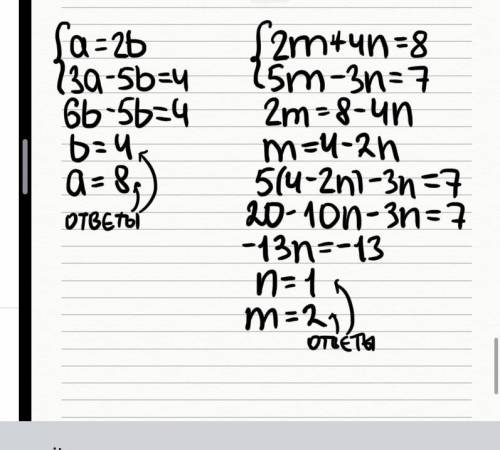 {a=2b
{3a-5b=4
6b-5b=4
b=4
a=8
ответы
{2m+4n=8
{5m-3n=7
2m=8-4n
m=4-2n
5(4-2n)-3n=7
20-10n-3n=7
-13n=-13
n=1
m=2
ответы